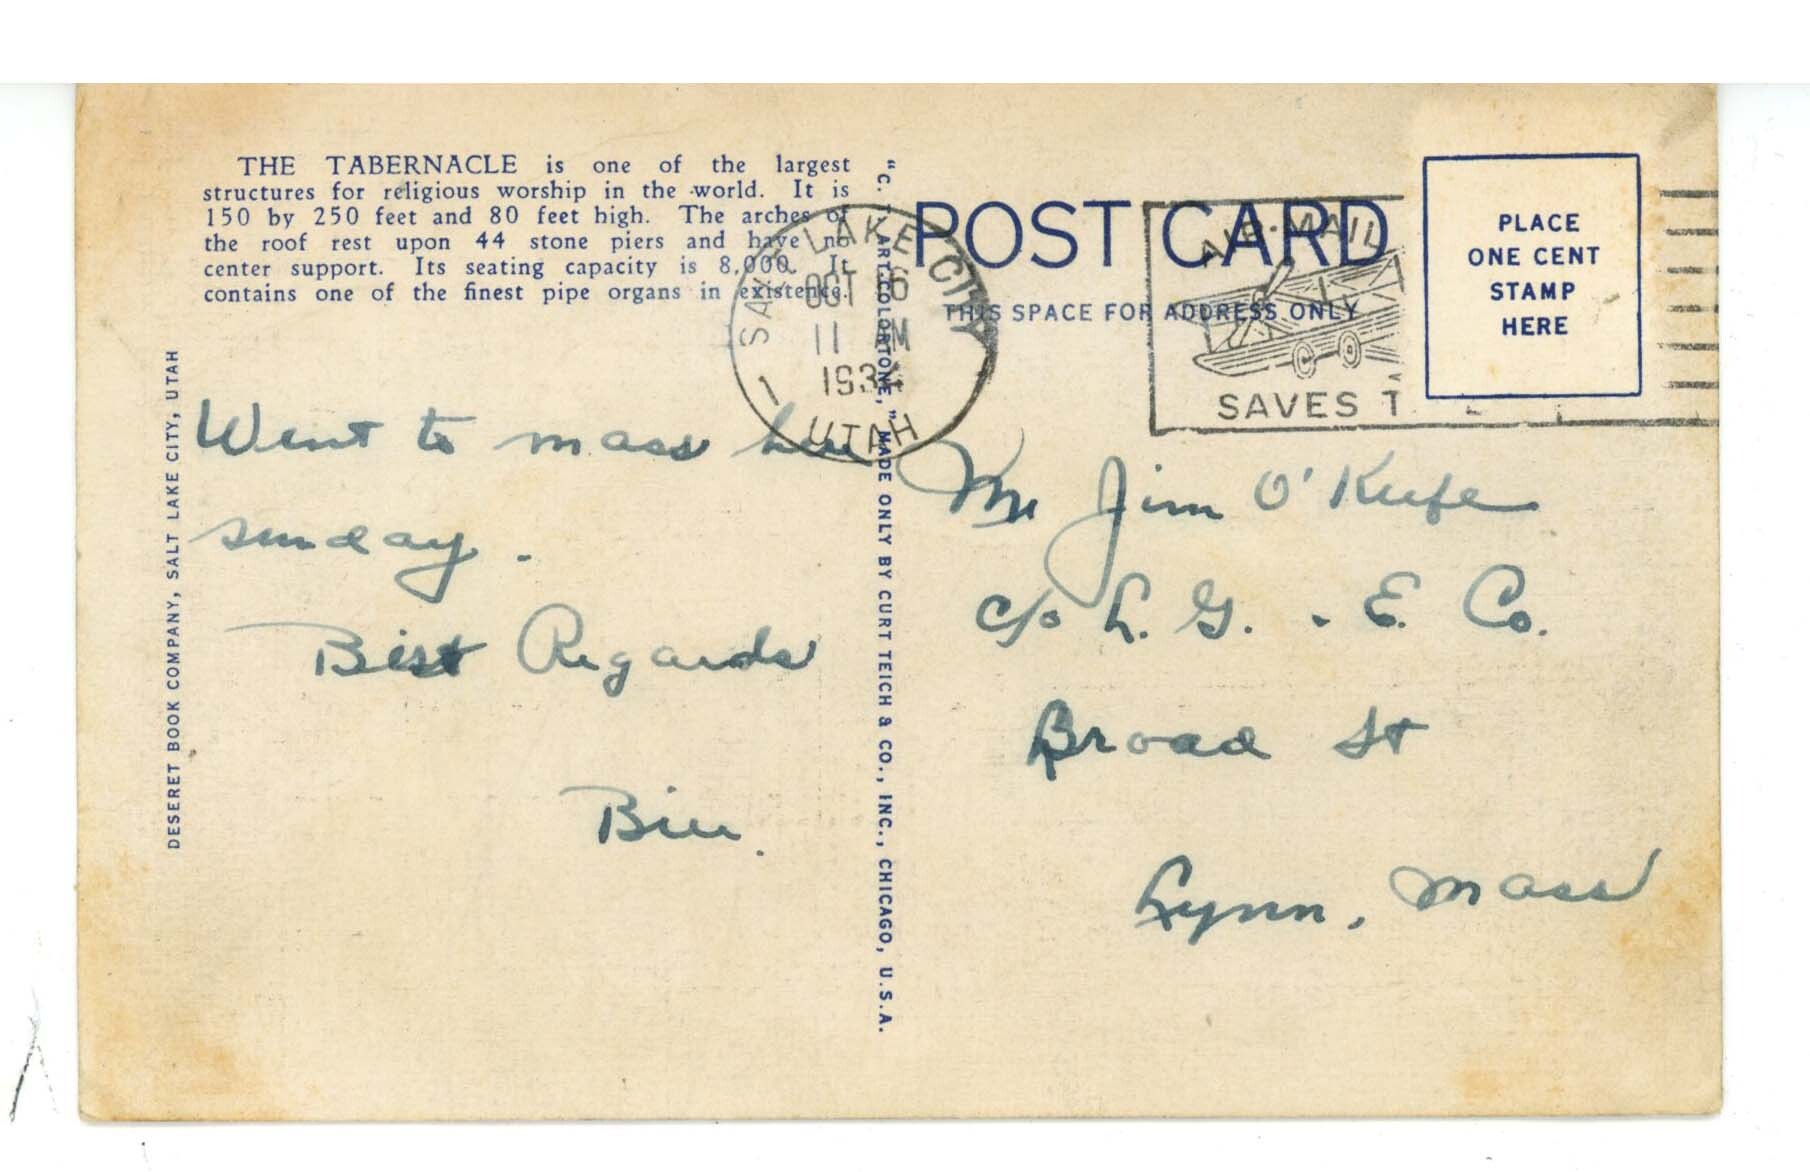 THE TABERNACLE is one of the largest
structures for religious worship in the world. It is
150 by 250 feet and 80 feet high. The arches of
the roof rest upon 44 stone piers and have no
center support. Its seating capacity is 8,000. It
contains one of the finest pipe organs in existence.
DESERET BOOK COMPANY, SALT LAKE CITY, UTAH
Went to mass here
sunday.
Best Regards
Bill.
"C. T. ART-COLORTONE," MADE ONLY BY CURT TEICH & CO., INC., CHICAGO, U.S.A.
SALT LAKE CITY
OCT 16
11 AM
1934
1 UTAH
POST CARD
THIS SPACE FOR ADDRESS ONLY
AIR-MAIL
SAVES T
PLACE
ONE CENT
STAMP
HERE
Mr Jim O'Keefe
c/o L. G. - E. Co.
Broad St
Lynn, Mass